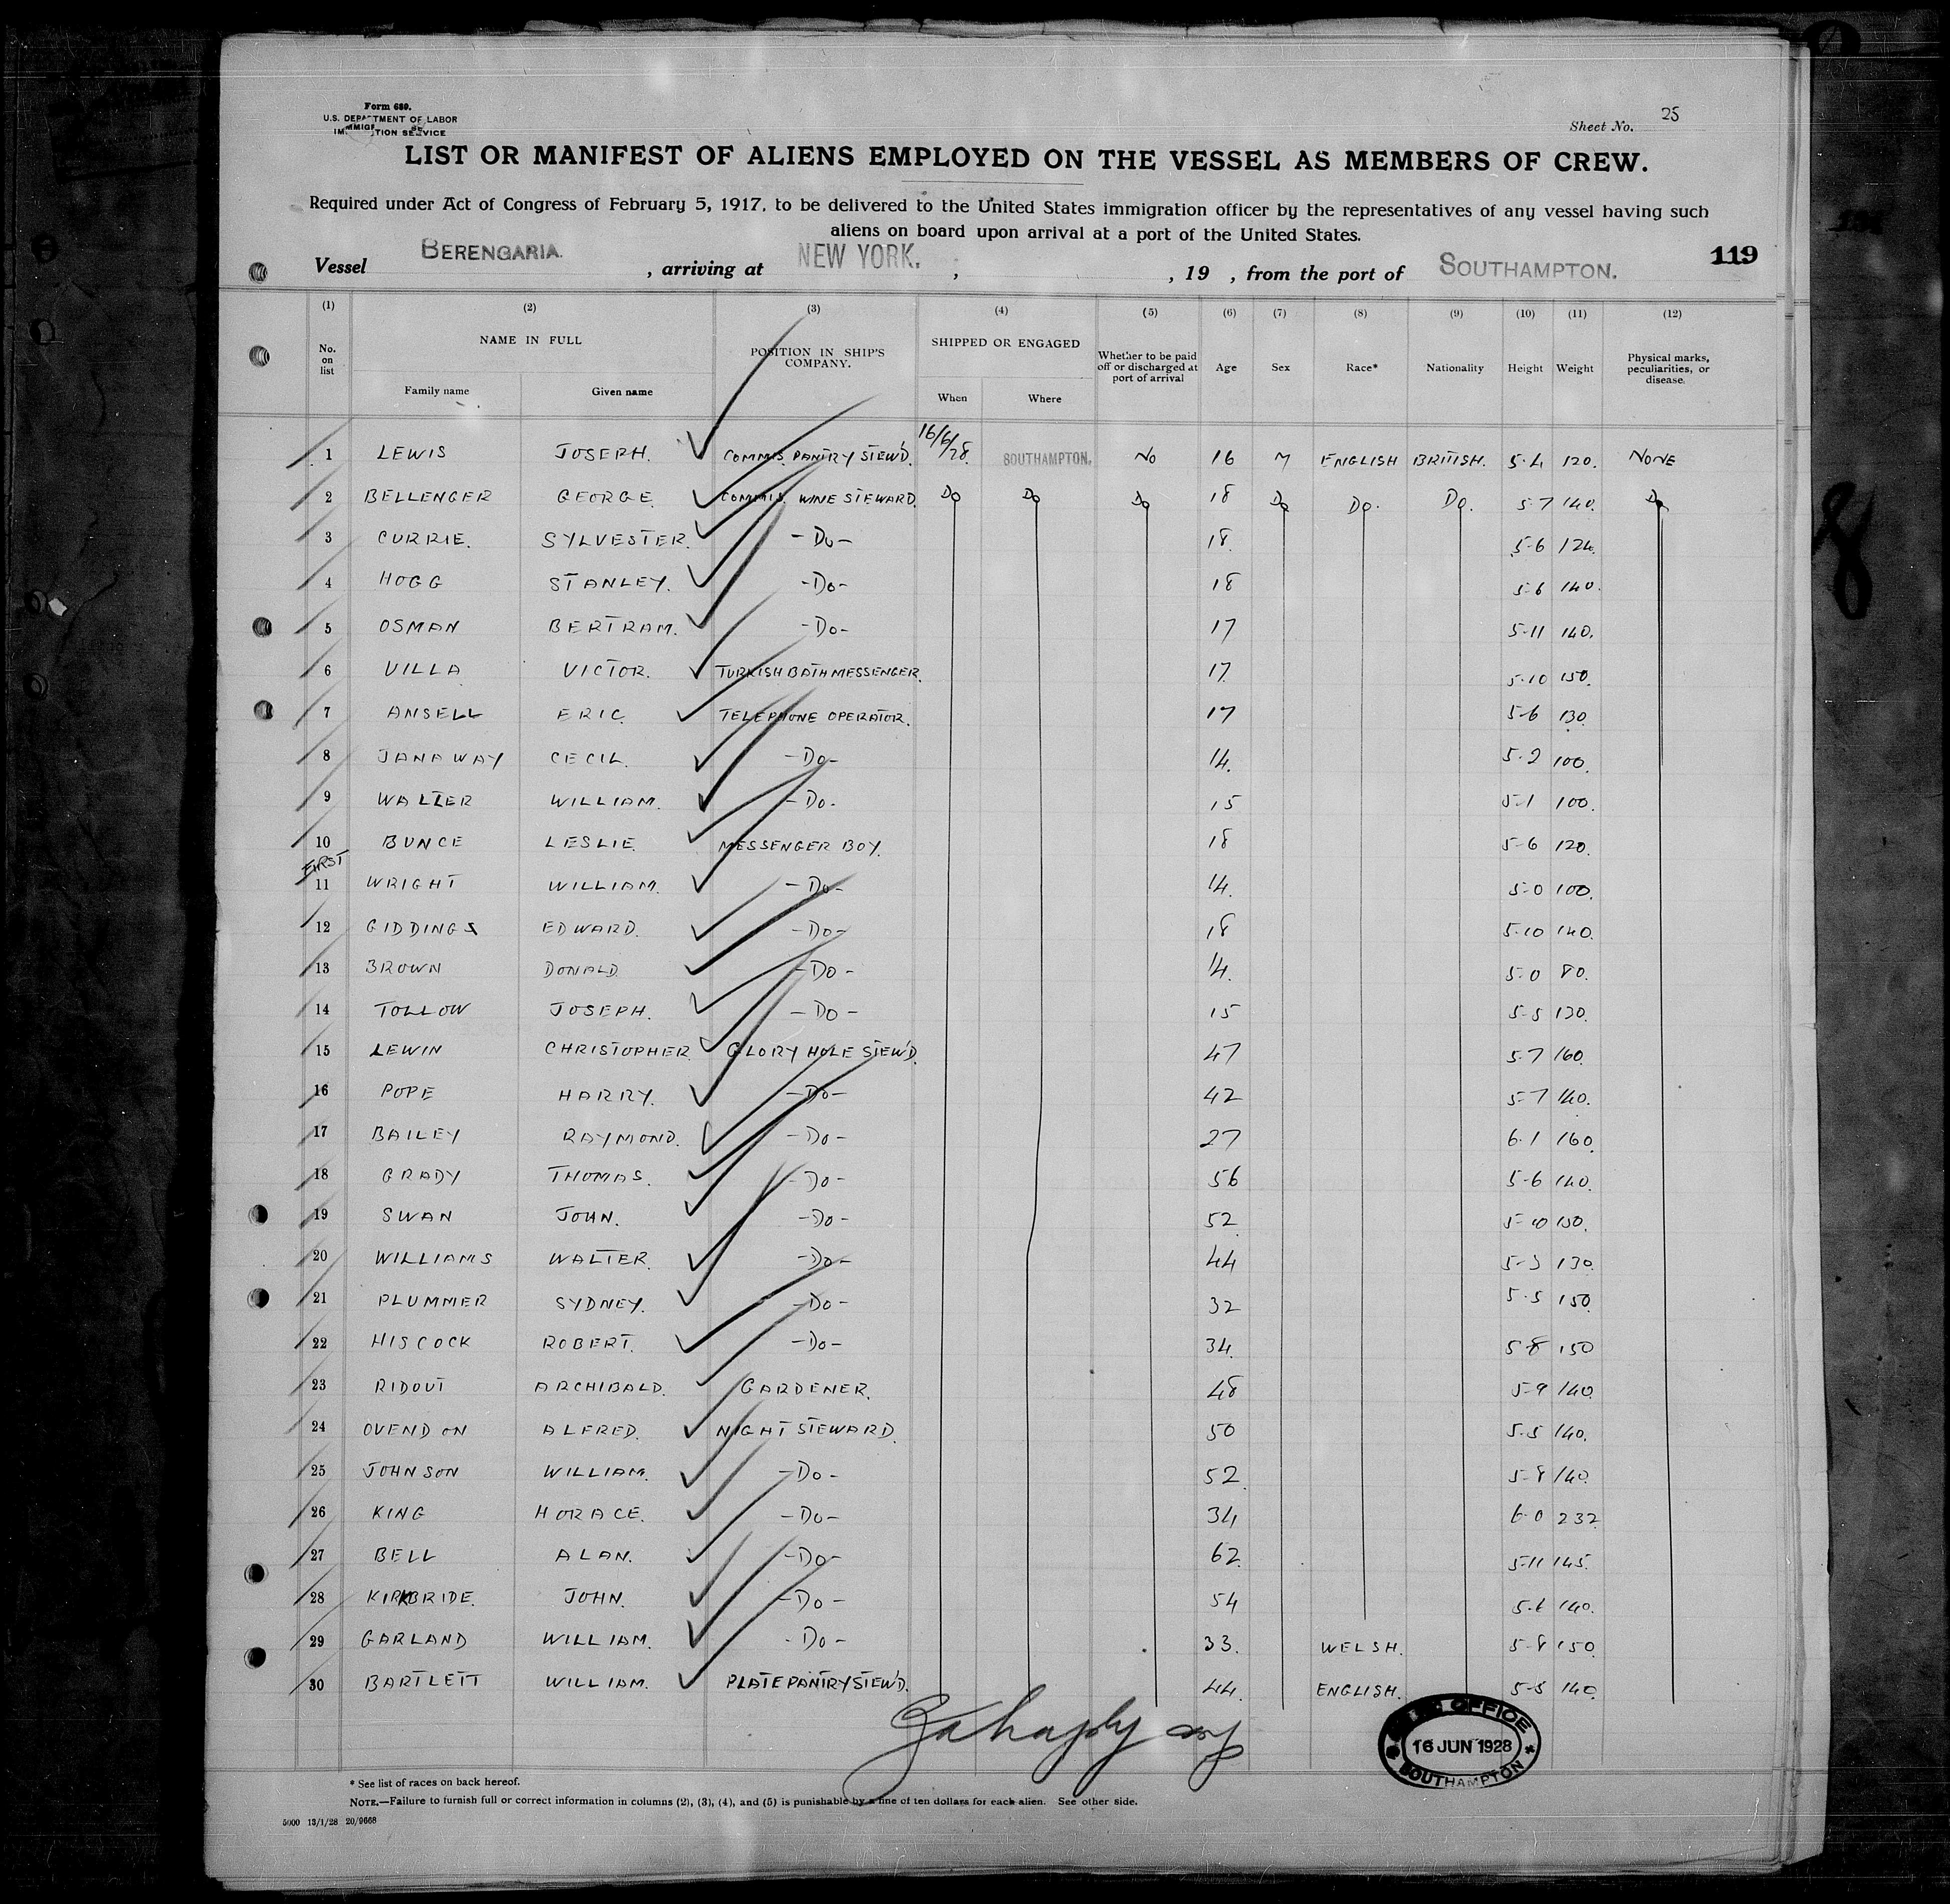 Form 680.
U.S. DEPARTMENT OF LABOR
IMMIGRATION SERVICE
Sheet No. 25
LIST OR MANIFEST OF ALIENS EMPLOYED ON THE VESSEL AS MEMBERS OF CREW.
Required under Act of Congress of February 5, 1917, to be delivered to the United States immigration officer by the representatives of any vessel having such
aliens on board upon arrival at a port of the United States.
119
Vessel BERENGARIA. , arriving at NEW YORK. , , 19 , from the port of SOUTHAMPTON.
(1) (2) (3) (4) (5) (6) (7) (8) (9) (10) (11) (12)
No. on list NAME IN FULL Family name Given name POSITION IN SHIP'S COMPANY. SHIPPED OR ENGAGED When Where Whether to be paid off or discharged at port of arrival Age Sex Race* Nationality Height Weight Physical marks, peculiarities, or disease.
1 LEWIS JOSEPH. COMMIS. PANTRY STEW'D. 16/6/28. SOUTHAMPTON. NO 16 M ENGLISH BRITISH. 5-4 120. NONE
2 BELLENGER GEORGE COMMIS. WINE STEWARD. Do Do Do 18 Do Do. Do. 5-7 140. Do
3 CURRIE. SYLVESTER. -Do- 18. 5-6 124.
4 HOGG STANLEY. -Do- 18 5-6 140.
5 OSMAN BERTRAM. -Do- 17 5-11 140.
6 VILLA VICTOR. TURKISH BATH MESSENGER. 17. 5-10 150.
7 ANSELL ERIC. TELEPHONE OPERATOR. 17 5-6 130.
8 JANAWAY CECIL. -Do- 14. 5-2 100.
9 WALTER WILLIAM. -Do. 15 5-1 100.
10 BUNCE LESLIE. MESSENGER BOY. 18 5-6 120.
FIRST
11 WRIGHT WILLIAM. -Do- 14. 5-0 100.
12 GIDDINGS EDWARD. -Do- 18 5-10 140.
13 BROWN DONALD. -Do- 14. 5-0 80.
14 TOLLOW JOSEPH. -Do- 15 5-5 130.
15 LEWIN CHRISTOPHER GLORY HOLE STEW'D. 47 5-7 160.
16 POPE HARRY. -Do- 42 5-7 140.
17 BAILEY RAYMOND. -Do- 27 6-1 160.
18 GRADY THOMAS. -Do- 56 5-6 140.
19 SWAN JOHN. -Do- 52. 5-10 150.
20 WILLIAMS WALTER. -Do- 44 5-5 130.
21 PLUMMER SYDNEY. -Do- 32 5-5 150.
22 HISCOCK ROBERT. -Do- 34. 5-8 150
23 RIDOUT ARCHIBALD. GARDENER. 48 5-9 140.
24 OVENDON ALFRED. NIGHT STEWARD. 50 5-5 140.
25 JOHNSON WILLIAM. -Do- 52. 5-8 140.
26 KING HORACE. -Do- 34 6-0 232
27 BELL ALAN. -Do- 62. 5-11 145.
28 KIRKBRIDE. JOHN. -Do- 54 5-6 140.
29 GARLAND WILLIAM. -Do- 33. WELSH. 5-8 150.
30 BARTLETT WILLIAM. PLATE PANTRY STEW'D. 44. ENGLISH. 5-5 140.
OFFICE
16 JUN 1928
SOUTHAMPTON
* See list of races on back hereof.
NOTE.—Failure to furnish full or correct information in columns (2), (3), (4), and (5) is punishable by a fine of ten dollars for each alien. See other side.
5000 13/1/28 20/9668